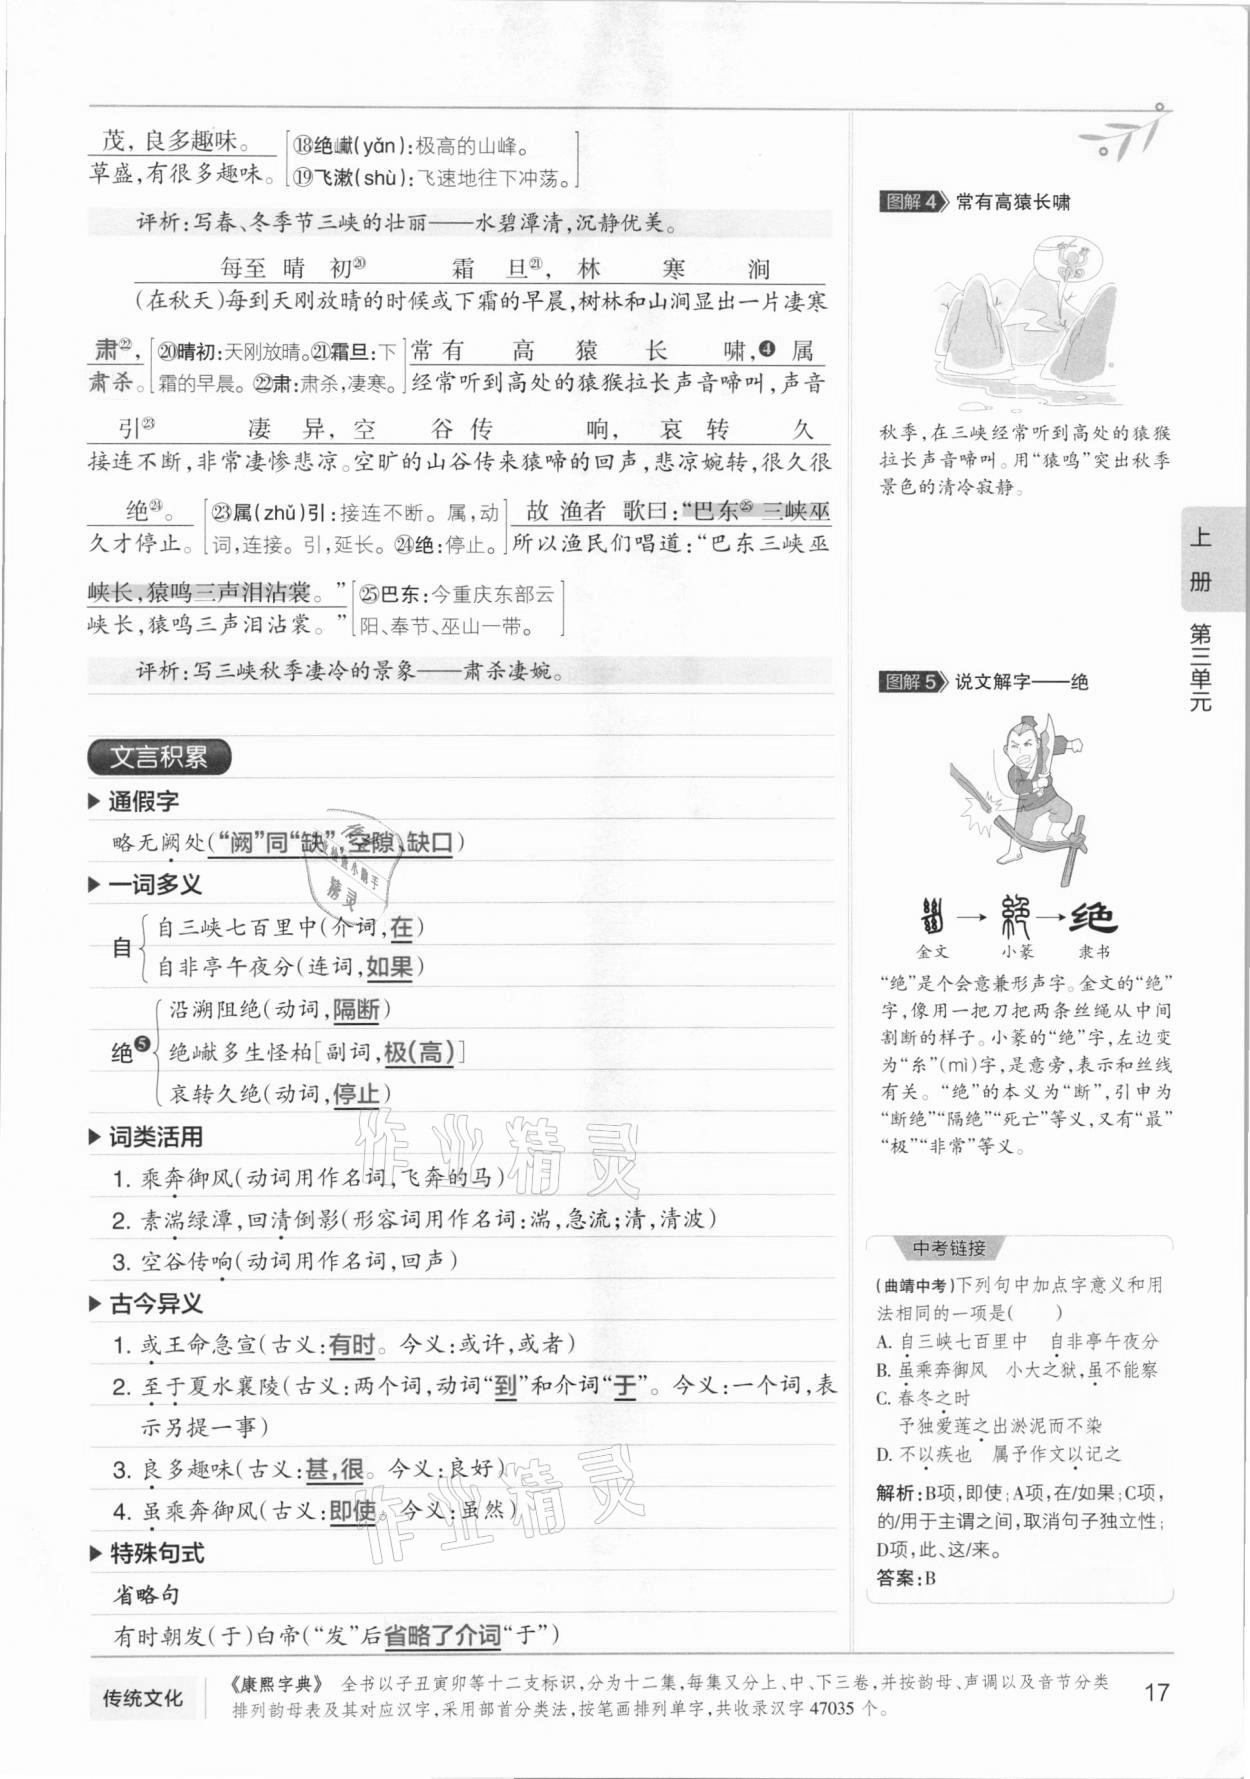 茂,良多趣味。
草盛,有很多趣味。
⑱绝巘(yǎn):极高的山峰。
⑲飞漱(shù):飞速地往下冲荡。
评析:写春、冬季节三峡的壮丽——水碧潭清,沉静优美。
每至 晴 初⑳ 霜 旦㉑, 林 寒 涧
(在秋天)每到天刚放晴的时候或下霜的早晨,树林和山涧显出一片凄寒
肃㉒,
肃杀。
⑳晴初:天刚放晴。㉑霜旦:下
霜的早晨。㉒肃:肃杀,凄寒。
常有 高 猿 长 啸,❹ 属
经常听到高处的猿猴拉长声音啼叫,声音
引㉓ 凄 异,空 谷传 响, 哀 转 久
接连不断,非常凄惨悲凉。空旷的山谷传来猿啼的回声,悲凉婉转,很久很
绝㉔。
久才停止。
㉓属(zhǔ)引:接连不断。属,动
词,连接。引,延长。㉔绝:停止。
故 渔者 歌曰:“巴东㉕ 三峡巫
所以渔民们唱道:“巴东三峡巫
峡长,猿鸣三声泪沾裳。”
峡长,猿鸣三声泪沾裳。”
㉕巴东:今重庆东部云
阳、奉节、巫山一带。
评析:写三峡秋季凄冷的景象——肃杀凄婉。
文言积累
▶通假字
略无阙处(“阙”同“缺”,空隙、缺口)
▶一词多义
自
自三峡七百里中(介词,在)
自非亭午夜分(连词,如果)
绝❺
沿溯阻绝(动词,隔断)
绝巘多生怪柏[副词,极(高)]
哀转久绝(动词,停止)
▶词类活用
1. 乘奔御风(动词用作名词,飞奔的马)
2. 素湍绿潭,回清倒影(形容词用作名词:湍,急流;清,清波)
3. 空谷传响(动词用作名词,回声)
▶古今异义
1. 或王命急宣(古义:有时。今义:或许,或者)
2. 至于夏水襄陵(古义:两个词,动词“到”和介词“于”。今义:一个词,表
示另提一事)
3. 良多趣味(古义:甚,很。今义:良好)
4. 虽乘奔御风(古义:即使。今义:虽然)
▶特殊句式
省略句
有时朝发(于)白帝(“发”后省略了介词“于”)
图解4 常有高猿长啸
秋季,在三峡经常听到高处的猿猴
拉长声音啼叫。用“猿鸣”突出秋季
景色的清冷寂静。
图解5 说文解字——绝
絕→絕→绝
金文 小篆 隶书
“绝”是个会意兼形声字。金文的“绝”
字,像用一把刀把两条丝绳从中间
割断的样子。小篆的“绝”字,左边变
为“糸”(mì)字,是意旁,表示和丝线
有关。“绝”的本义为“断”,引申为
“断绝”“隔绝”“死亡”等义,又有“最”
“极”“非常”等义。
中考链接
(曲靖中考)下列句中加点字意义和用
法相同的一项是(  )
A. 自三峡七百里中 自非亭午夜分
B. 虽乘奔御风 小大之狱,虽不能察
C. 春冬之时
予独爱莲之出淤泥而不染
D. 不以疾也 属予作文以记之
解析:B项,即使;A项,在/如果;C项,
的/用于主谓之间,取消句子独立性;
D项,此、这/来。
答案:B
上册
第三单元
传统文化
《康熙字典》 全书以子丑寅卯等十二支标识,分为十二集,每集又分上、中、下三卷,并按韵母、声调以及音节分类
排列韵母表及其对应汉字,采用部首分类法,按笔画排列单字,共收录汉字 47035 个。
17
作业精灵
作业精灵